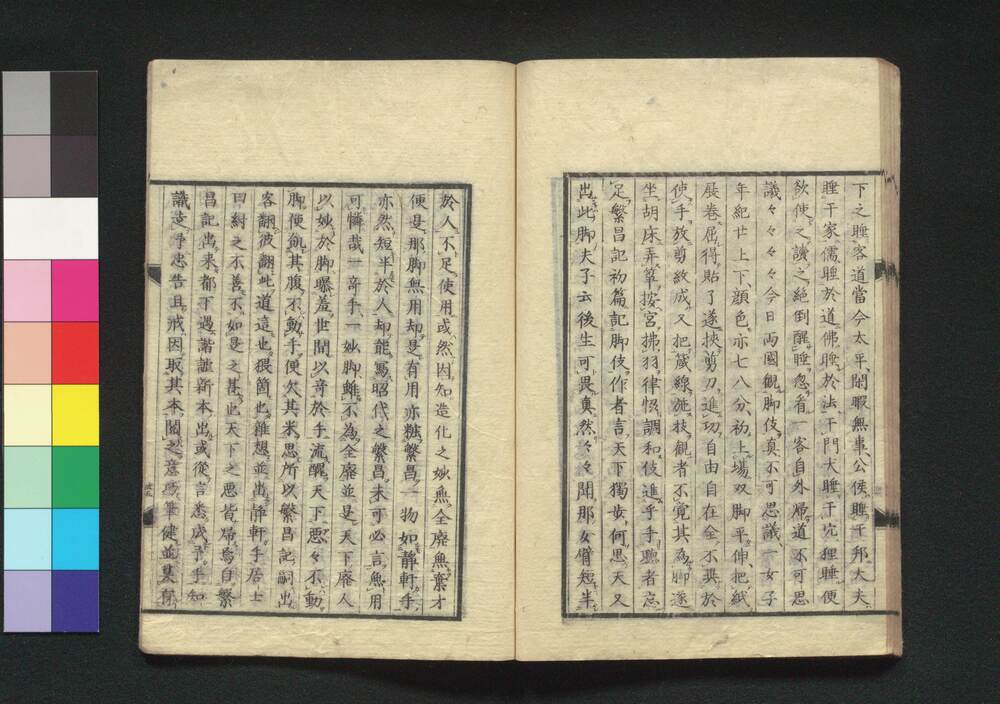 下之睡客道當今太平閒暇無事公侯睡于邦大夫
睡于家儒睡於道佛睡於法干門大睡于穴狸睡便
欲使之讀之絕倒醒睡忽看一客自外帰道不可思
議々々々々今日両國観脚伎真不可思議一女子
年紀廿上下顔色亦七八分初上場双脚平伸把紙
展卷屈得貼了遂挾剪刀進切自由自在全不異於
使手放剪紋成又把箴線施技観者不覚其為脚遂
坐胡床弄箏按宮拂羽律恊調和伎進乎手聽者忘
足繁昌記初篇記脚伎作者言天下獨歩何思天又
出此脚夫子云後生可畏真然々々聞那女脣短半
於人不足使用或然因知造化之妙無全廃無棄才
便是那脚無用却是有用亦粧繁昌一物如靜軒手
亦然短半於人却能寫昭代之繁昌未可必言無用
可憐哉一奇手一妙脚雖不為全廃並是天下廃人
以妙於脚曝羞世間以奇於手流醜天下悪々不動
脚便飢其腹不動手便欠其米思所以繁昌記嗣出
客翻彼翻此道這也猥箇也雜想並出靜軒手居士
曰紂之不善不如是之甚也天下之悪皆帰焉自繁
昌記出来都下遇諧謔新本出或從言悉成予手知
識造 忠告且戒因取其本閲之意 筆健並